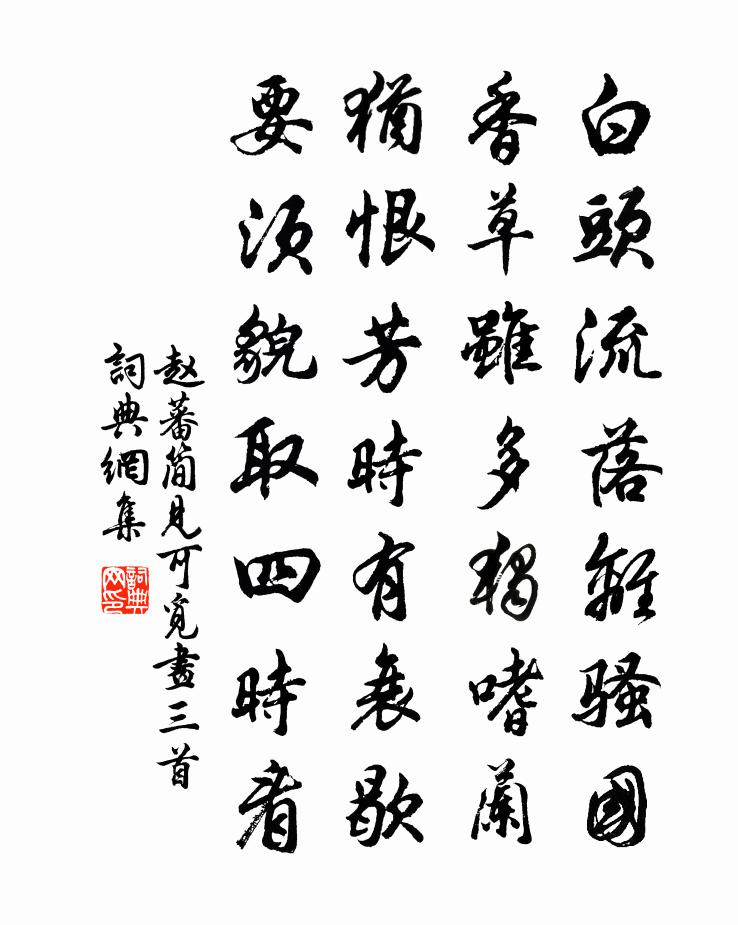 白頭流落離騷國
香草雖多獨嗜蘭
猶恨芳時有衰歇
要須貌取四時看
赵蕃簡見可覓畫三首
詞典網集
詞典网印